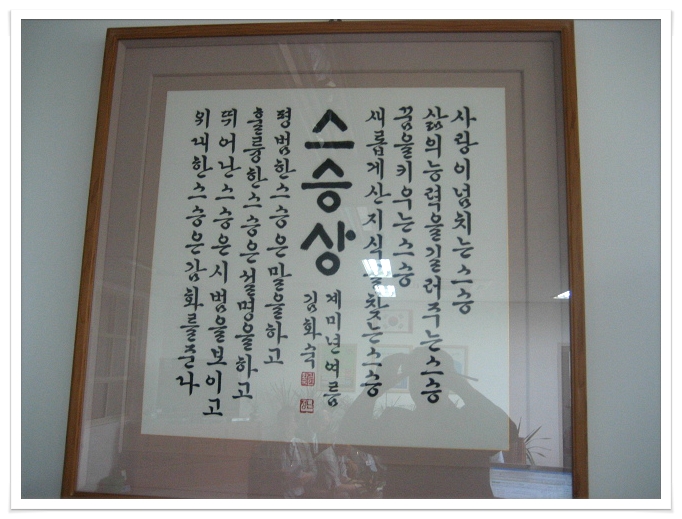 사랑이넘치는스승
삶의능력을길러주는스승
꿈을키우는스승
새롭게산지식을찾는스승
스승상
계미년여름
김화숙
평범한스승은말을하고
훌륭한스승은설명을하고
뛰어난스승은시범을보이고
위대한스승은감화를준다